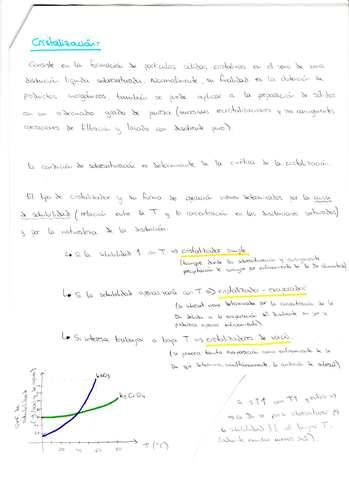 Cristalización:
Consiste en la formación de partículas sólidas cristalinas en el seno de una
disolución líquida sobresaturada. Normalmente, su finalidad es la obtención de
productos inorgánicos, también se puede aplicar a la preparación de sólidos
con un adecuado grado de pureza (sucesivas recristalizaciones y sus consiguientes
operaciones de filtración y lavado con disolvente puro).
La condición de sobresaturación es determinante de la cinética de la cristalización.
El tipo de cristalizador y su forma de operación vienen determinados por la curva
de solubilidad (relación entre la T y la concentración en las disoluciones saturadas)
y por la naturaleza de la disolución.
↳ Si la solubilidad ↑ con T ⇒ cristalizador simple
(tanque donde la sobresaturación y consiguiente
precipitación se consigue por enfriamiento de la Dn alimentada)
↳ Si la solubilidad apenas varía con T ⇒ cristalizador - evaporador
(la sobresat. viene determinada por la concentración de la
Dn debida a la evaporación del disolvente sin que se
produzca apenas enfriamiento).
↳ Si interesa trabajar a baja T ⇒ cristalizadores de vacío.
(se provoca tanto evaporación como enfriamiento de la
Dn que determina, simultáneamente, la condición de sobresat.)
Coef. de
solubilidad
KNO3
K2CrO4
20 40 60 80
T (°C)
Si s↑↑ con T↑ y enfrío
⇒ la Dn se sobresatura
la solubilidad ↓↓ al bajar T.
(admite mucha menos sal).